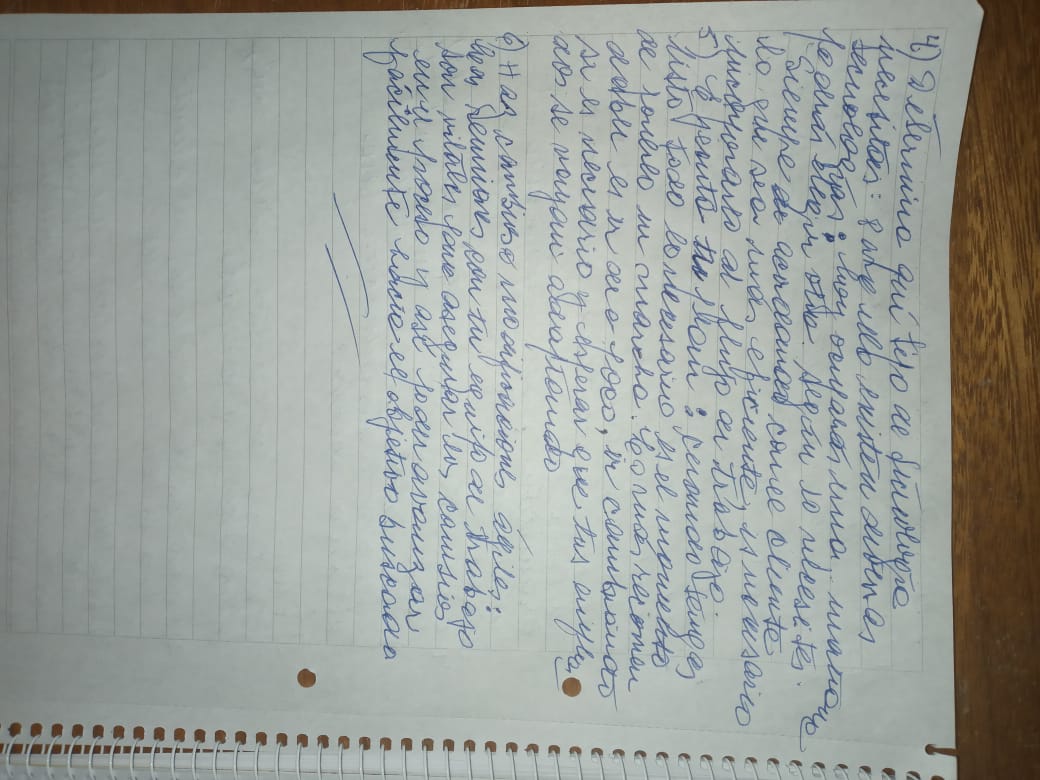 4) Determina qué tipo de tecnología
necesitas: para ello existen diversas
tecnologías: hoy ocuparás una, mañana
podrás elegir otra. Según lo necesites.
Siempre acordando con el cliente
lo que sea más eficiente, es necesario
incorporarlo al flujo de trabajo.
5) Ejecuta tu plan: cuando tengas
listo todo lo necesario es el momento
de ponerlo en marcha. Lo más recomen
dable es ir de a poco, ir cambiando
si es necesario y esperar que tus emplea
dos se vayan adaptando
6) Haz cambios o modificaciones ágiles:
Las reuniones con tu equipo de trabajo
son vitales para asegurar los cambios
en el proceso y así poder avanzar
fácilmente hacia el objetivo buscado